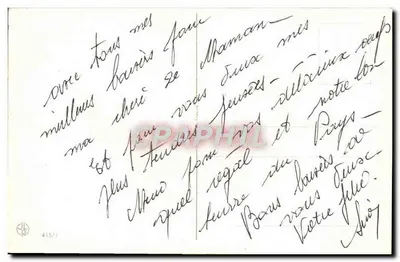 avec tous mes
meilleurs baisers pour
ma chère Maman
et pour vous deux mes
plus tendres pensées
Merci pour vos délicieux œufs
quel régal et notre bon
beurre du Pays
Bons baisers de
vous deux
Votre fille